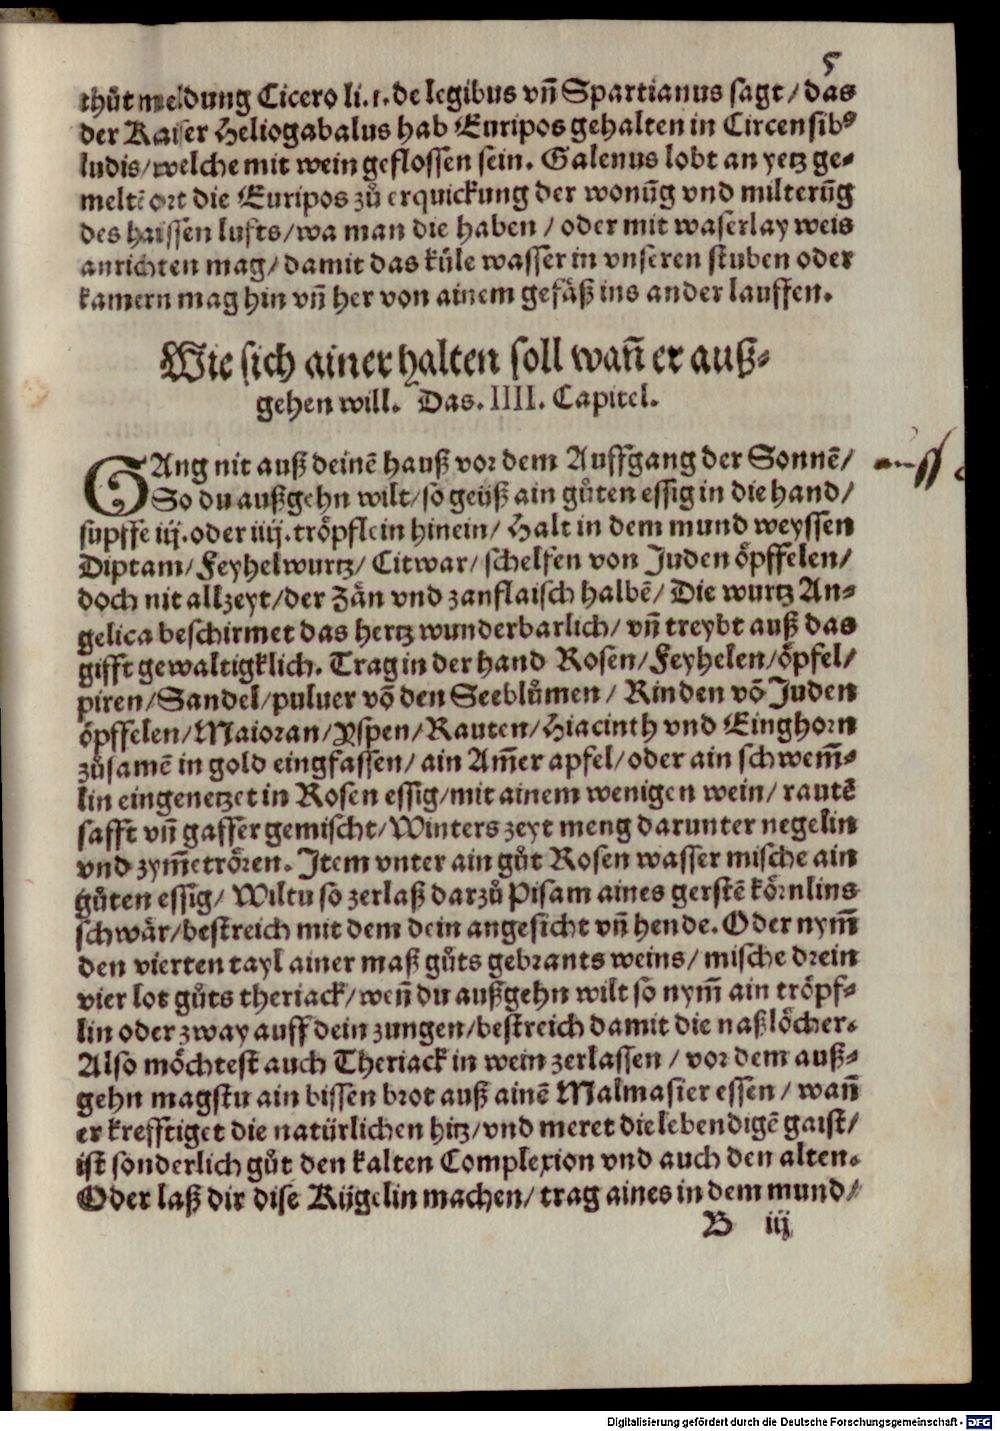 5
thůt meldung Cicero li.1. de legibus vñ Spartianus sagt / das
der Kaiser Heliogabalus hab Euripos gehalten in Circensibꝰ
ludis / welche mit wein geflossen sein. Galenus lobt an yetz ge-
meltē ort die Euripos zů erquickung der wonūg vnd milterūg
des haissen lufts / wa man die haben / oder mit waserlay weis
anrichten mag / damit das küle wasser in vnseren stuben oder
kamern mag hin vñ her von ainem gefäß ins ander lauffen.
Wie sich ainer halten soll wañ er auß-
gehen will. Das. IIII. Capitel.
GAng nit auß deinē hauß vor dem Auffgang der Sonnē /
So du außgehn wilt / so geüß ain gůten essig in die hand /
supffe iij. oder iiij. tröpflein hinein / Halt in dem mund weyssen
Diptam / Feyhelwurtz / Citwar / schelfen von Juden öpffelen /
doch nit allzeyt / der Zän vnd zanflaisch halbē / Die wurtz An-
gelica beschirmet das hertz wunderbarlich / vñ treybt auß das
gifft gewaltigklich. Trag in der hand Rosen / Feyhelen / öpfel /
piren / Sandel / puluer vō den Seeblůmen / Rinden vō Juden
öpffelen / Maioran / Yspen / Rauten / Hiacinth vnd Einghorn
zůsamē in gold eingfassen / ain Am̄er apfel / oder ain schwem̄-
lin eingenetzet in Rosen essig / mit ainem wenigen wein / rautē
safft vñ gaffer gemischt / Winters zeyt meng darunter negelin
vnd zym̄etrören. Item vnter ain gůt Rosen wasser mische ain
gůten essig / Wiltu so zerlaß darzů Pisam aines gerstē körnlins
schwär / bestreich mit dem dein angesicht vñ hende. Oder nym̄
den vierten tayl ainer maß gůts gebrants weins / mische drein
vier lot gůts theriack / weñ du außgehn wilt so nym̄ ain tröpf-
lin oder zway auff dein zungen / bestreich damit die naßlöcher.
Also möchtest auch Theriack in wein zerlassen / vor dem auß-
gehn magstu ain bissen brot auß ainē Malmasier essen / wañ
er krefftiget die natürlichen hitz / vnd meret die lebendigē gaist /
ist sonderlich gůt den kalten Complexion vnd auch den alten.
Oder laß dir dise Kügelin machen / trag aines in dem mund /
B iij
Digitalisierung gefördert durch die Deutsche Forschungsgemeinschaft - DFG